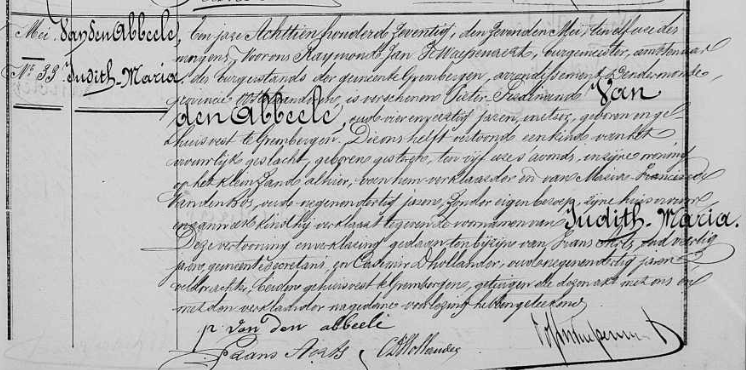 Mei. Van den Abbeele, Een jare Achttien honderd Zeventig, den Mei, ten elf ure des
Nr 33 Judith-Maria morgens, voor ons Raymond Jan burgemeester, ambtenaar
des burgerstands der gemeente Grembergen, arrondissement Dendermonde,
provincie is verschenen Pieter Ferdinand Van
den Abbeele, oud vier en veertig jaren, geboren en ge-
huisvest te Grembergen. Die ons heeft vertoond een kind van het
vrouwlijk geslacht, geboren gisteren, ten vijf ure s'avonds, in zijne woning
op het klein Zand alhier, van hem verklaarder en van Maria Francisca
Van den Bos, oud negen en dertig jaren, zonder eigen beroep, zijne huisvrouw
en aan welk kind hij verklaart te geven de voornamen van Judith-Maria.
Deze vertooning en verklaring gedaen ten bijzijn van Frans veertig
jaren, gemeentesecretaris, en Casimir D'hollander, oud negen en dertig jaren
veldwachter, beiden gehuisvest te Grembergen, getuigen die dezen akt met ons en
met den verklaarder na gedane voorlezing hebben geteekend
p van den abbeele
Frans C D'Hollander